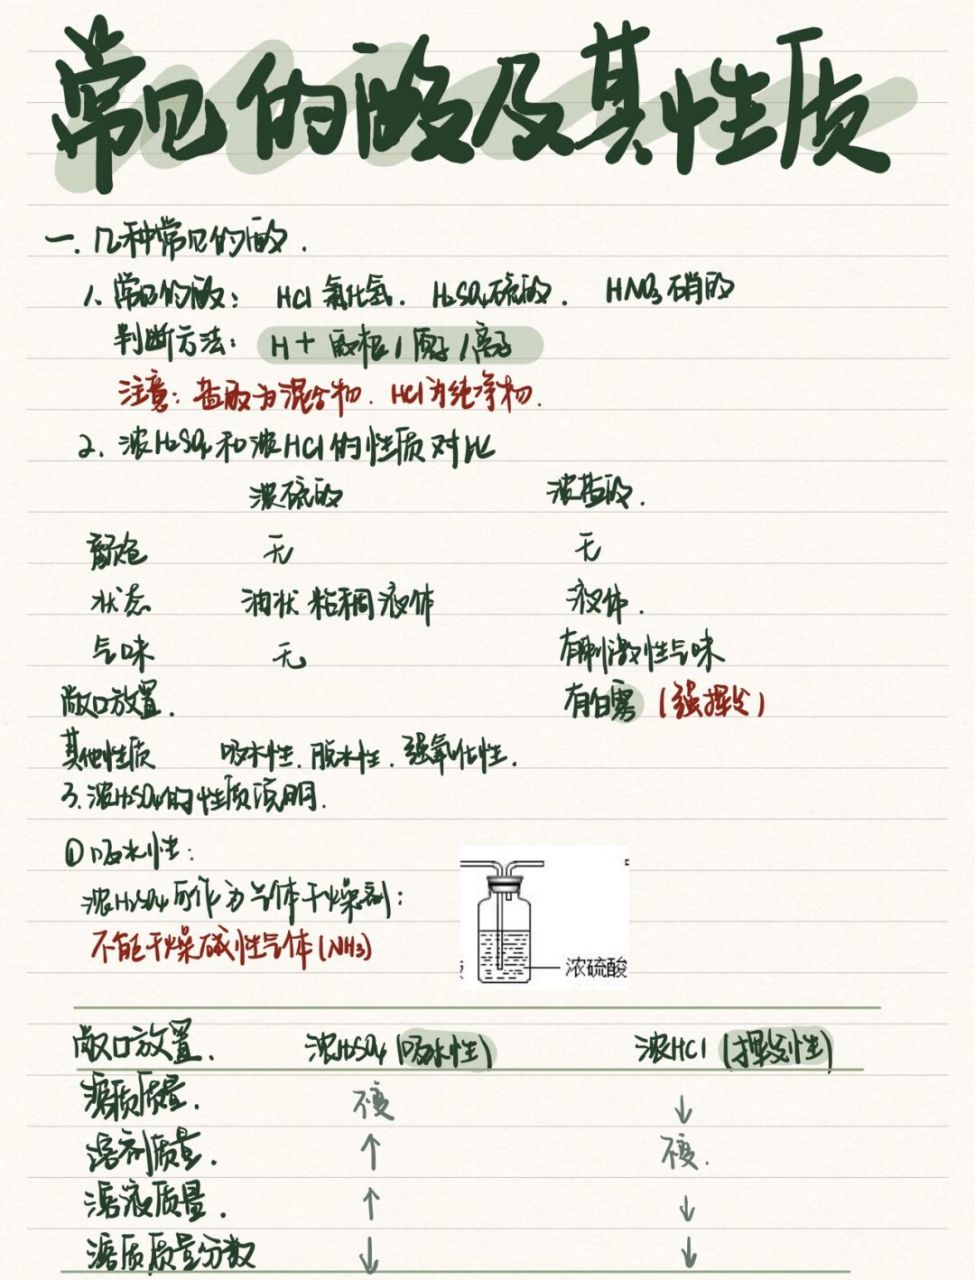 常见的酸及其性质
一. 几种常见的酸.
1. 常见的酸: HCl 氯化氢. H₂SO₄ 硫酸. HNO₃ 硝酸
判断方法: H+ 酸根/原子/离子
注意: 盐酸为混合物. HCl为纯净物.
2. 浓H₂SO₄和浓HCl的性质对比
浓硫酸 浓盐酸.
颜色 无 无
状态 油状 粘稠液体 液体.
气味 无 有刺激性气味
敞口放置. 有白雾 (强挥发)
其他性质 吸水性. 脱水性. 强氧化性.
3. 浓H₂SO₄的性质说明.
①吸水性:
浓H₂SO₄可作为气体干燥剂:
不能干燥碱性气体(NH₃)
浓硫酸
敞口放置. 浓H₂SO₄ (吸水性) 浓HCl (挥发性)
溶质质量. 不变 ↓
溶剂质量. ↑ 不变.
溶液质量. ↑ ↓
溶质质量分数 ↓ ↓